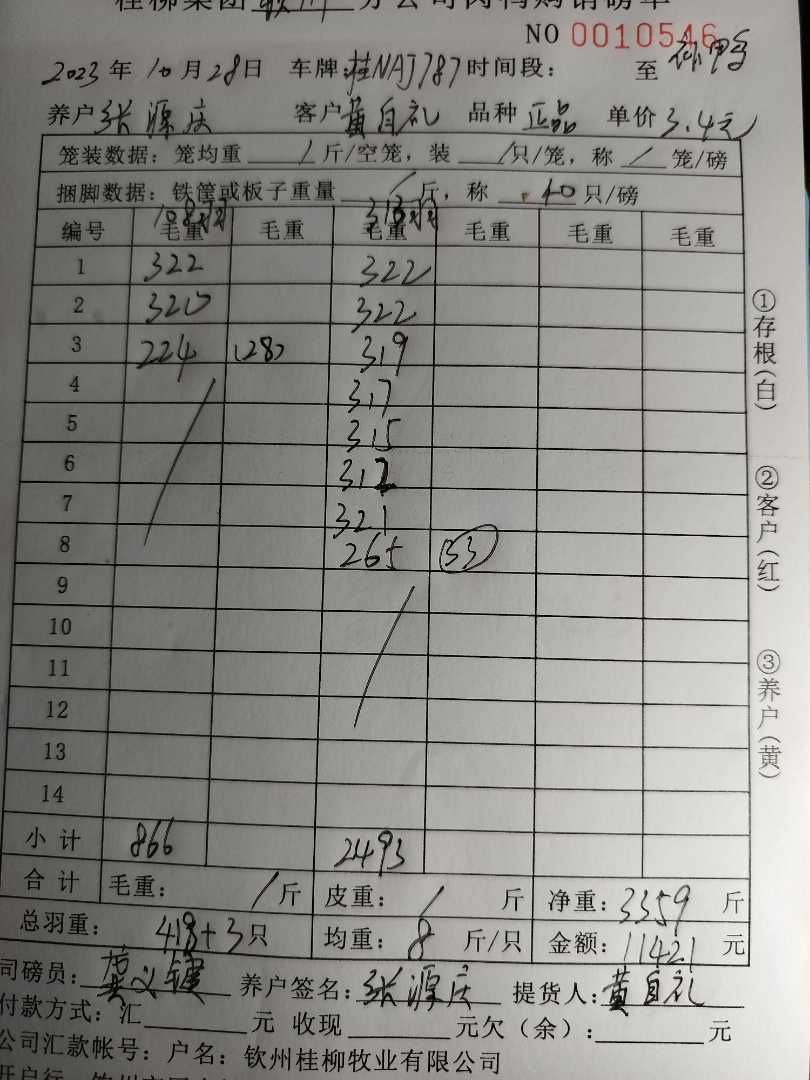 桂柳集团钦州分公司肉鸭购销磅单
NO 0010546
2023年10月28日 车牌:桂NAJ787时间段: 至
养户 张源庆 客户 黄自礼 品种 正品 单价 3.4元
笼装数据: 笼均重 / 斤/空笼, 装 / 只/笼, 称 / 笼/磅
捆脚数据: 铁筐或板子重量 / 斤, 称 40 只/磅
编号 毛重 毛重 毛重 毛重 毛重 毛重
1 322 322
2 320 322
3 224 (28) 319
4 317
5 315
6 312
7 321
8 265 (33)
9
10
11
12
13
14
小计 866 2493
合计 毛重: / 斤 皮重: / 斤 净重: 3359 斤
总羽重: 418+3只 均重: 8 斤/只 金额: 11421 元
司磅员: 养户签名: 张源庆 提货人: 黄自礼
付款方式: 汇 元 收现 元欠(余): 元
公司汇款帐号: 户名: 钦州桂柳牧业有限公司
①存根(白)
②客户(红)
③养户(黄)